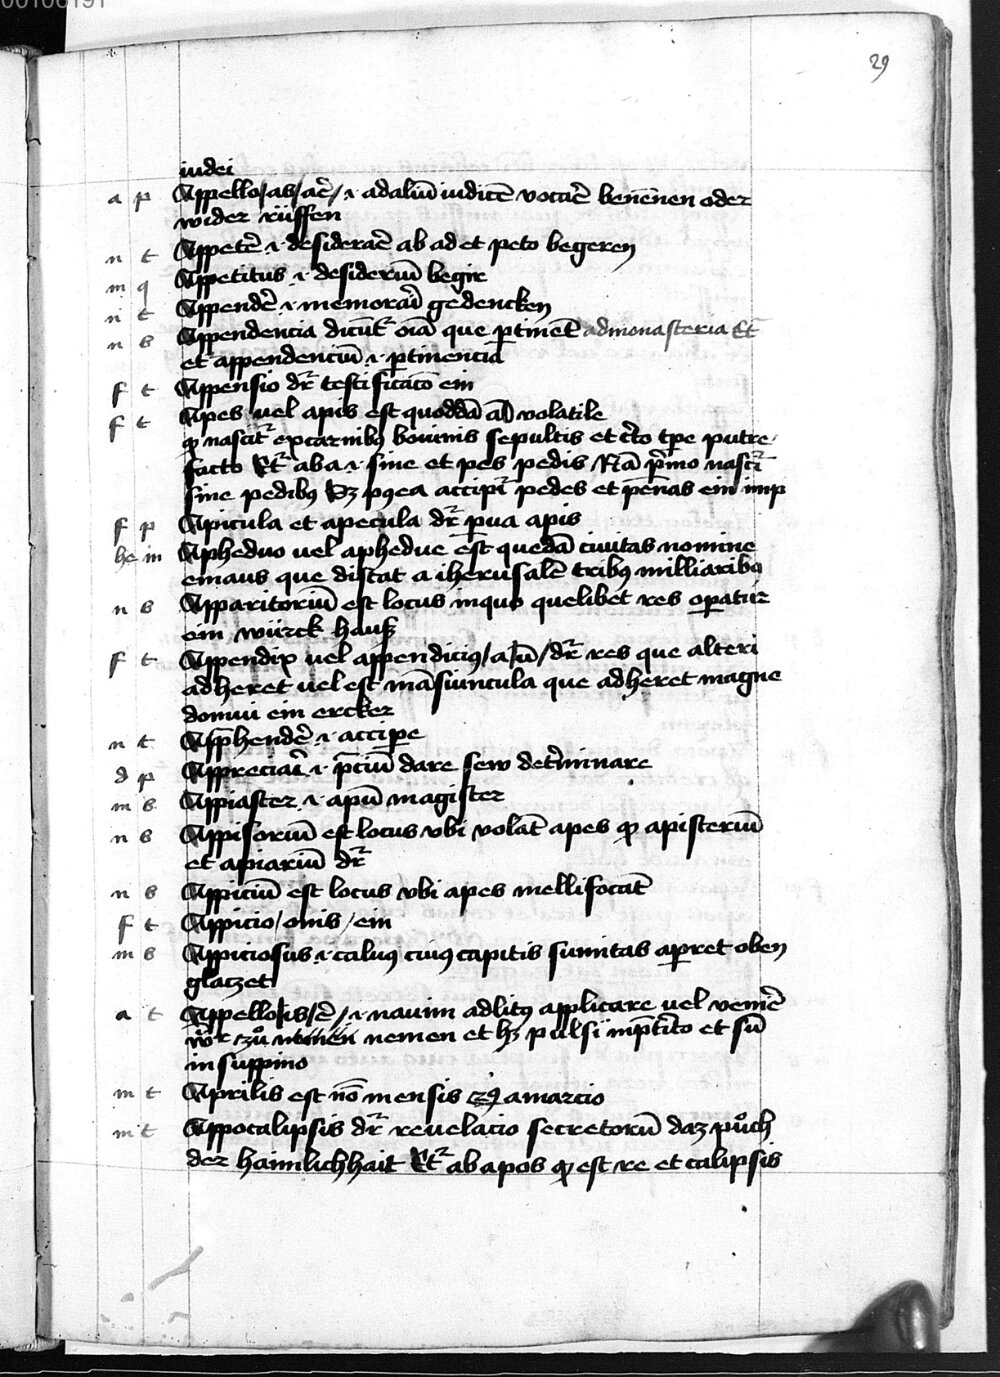 00106191
29
iudei
a p Appello/as/ar̄e/ .i. ad aliū iudicē vocar̄e benennen oder
wider rüffen
n t Appeter̄e .i. desiderar̄e ab ad et peto begeren
m q Appetitus .i. desideriū begir
n t Appender̄e .i. memorar̄i gedencken
n s Appendencia dicūt᷑ oīa que ꝑtinent ad monasteria Et᷑
et appendenciū .i. ꝑtinencia
f t Appensio dr̄ testificac̄o ein
f t Apes vel apis est quoddā al̄ volatile
qꝫ nascit᷑ ex carnibꝰ bouinis sepultis et c̄to tꝑe putre
facto Et᷑ ab a .i. sine et pes pedis Nā p̄mo nascit᷑
sine pedibꝰ Sꝫ pꝰea accipit᷑ pedes et pēnas ein imp
f p Apicula et apecula dr̄ ꝑua apis
he in Apheduo vel apheduc est quedā ciuitas nomine
emaus que distat a iherusalē tribꝰ milliaribꝰ
n s Apparitoriū est locus in quo quelibet res oꝑatur
ein würck hauß
f t Appendix vel appendiciꝰ/a/ū/ dr̄ res que alteri
adheret vel est māsiuncula que adheret magne
domui ein ercker
n t Apphender̄e .i. accipe
d p Appreciar̄i .i. p̄ciū dare sew det̄minare
m s Appiaster .i. apū magister
n s Appisoriū est locus vbi volāt apes qꝫ apisteriū
et apiariū dr̄
n s Appiciū est locus vbi apes mellificāt
f t Appicio/onis/ein
m s Appiciosus .i. caluꝰ cuiꝰ capitis sumitas aꝑret oben
glaczet
a t Appello/is/er̄e/ .i. nauim ad litꝰ applicare vel venir̄e
nemen et hꝫ pulsi in p̄t̄ito et sū
in suppino
m t Aprilis est nō mensis a marcio
m t Appocalipsis dr̄ reuelacio secretorū daz půch
der haimlichhait Et᷑ ab apos qꝫ est re et calipsis